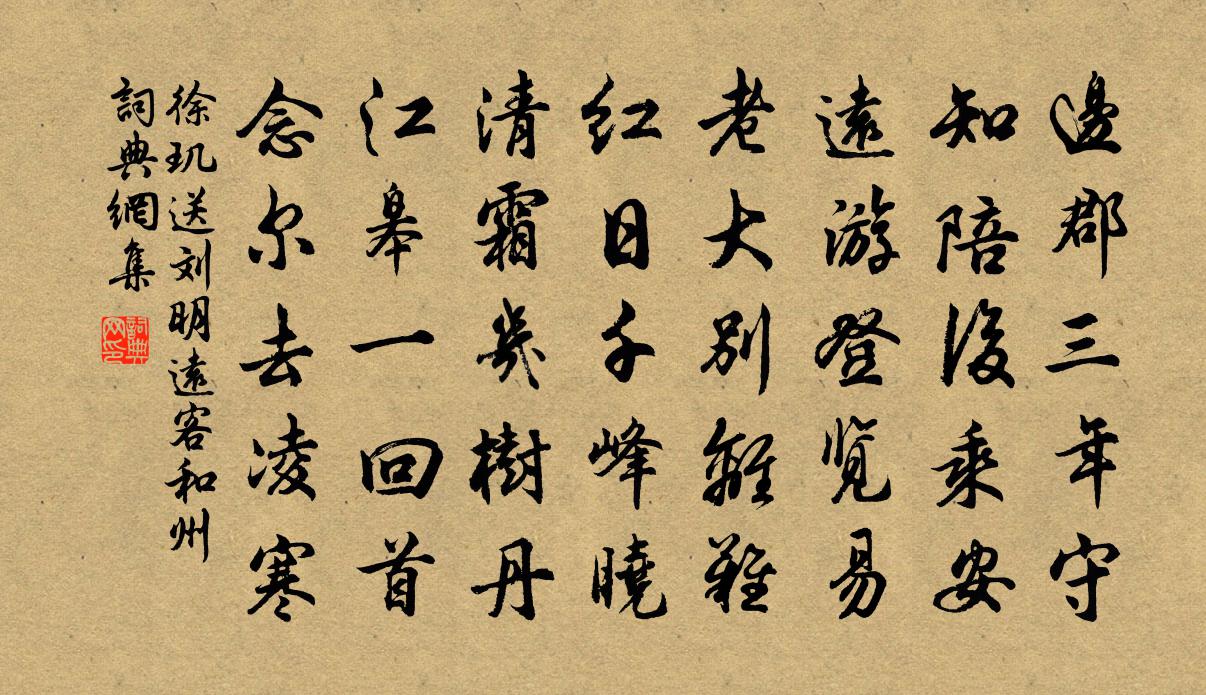 邊郡三年守
知陪後乘安
遠游登览易
老大別離難
红日千峰曉
清霜幾樹丹
江皋一回首
念尔去凌寒
徐玑送刘明遠客和州
詞典網集
詞典网印